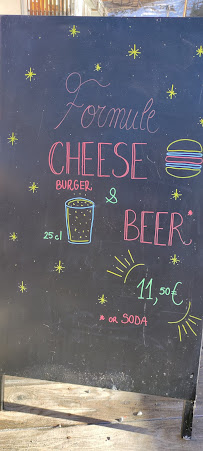 Formule
CHEESE
BURGER &
25cl
BEER*
11,50€
* OR SODA